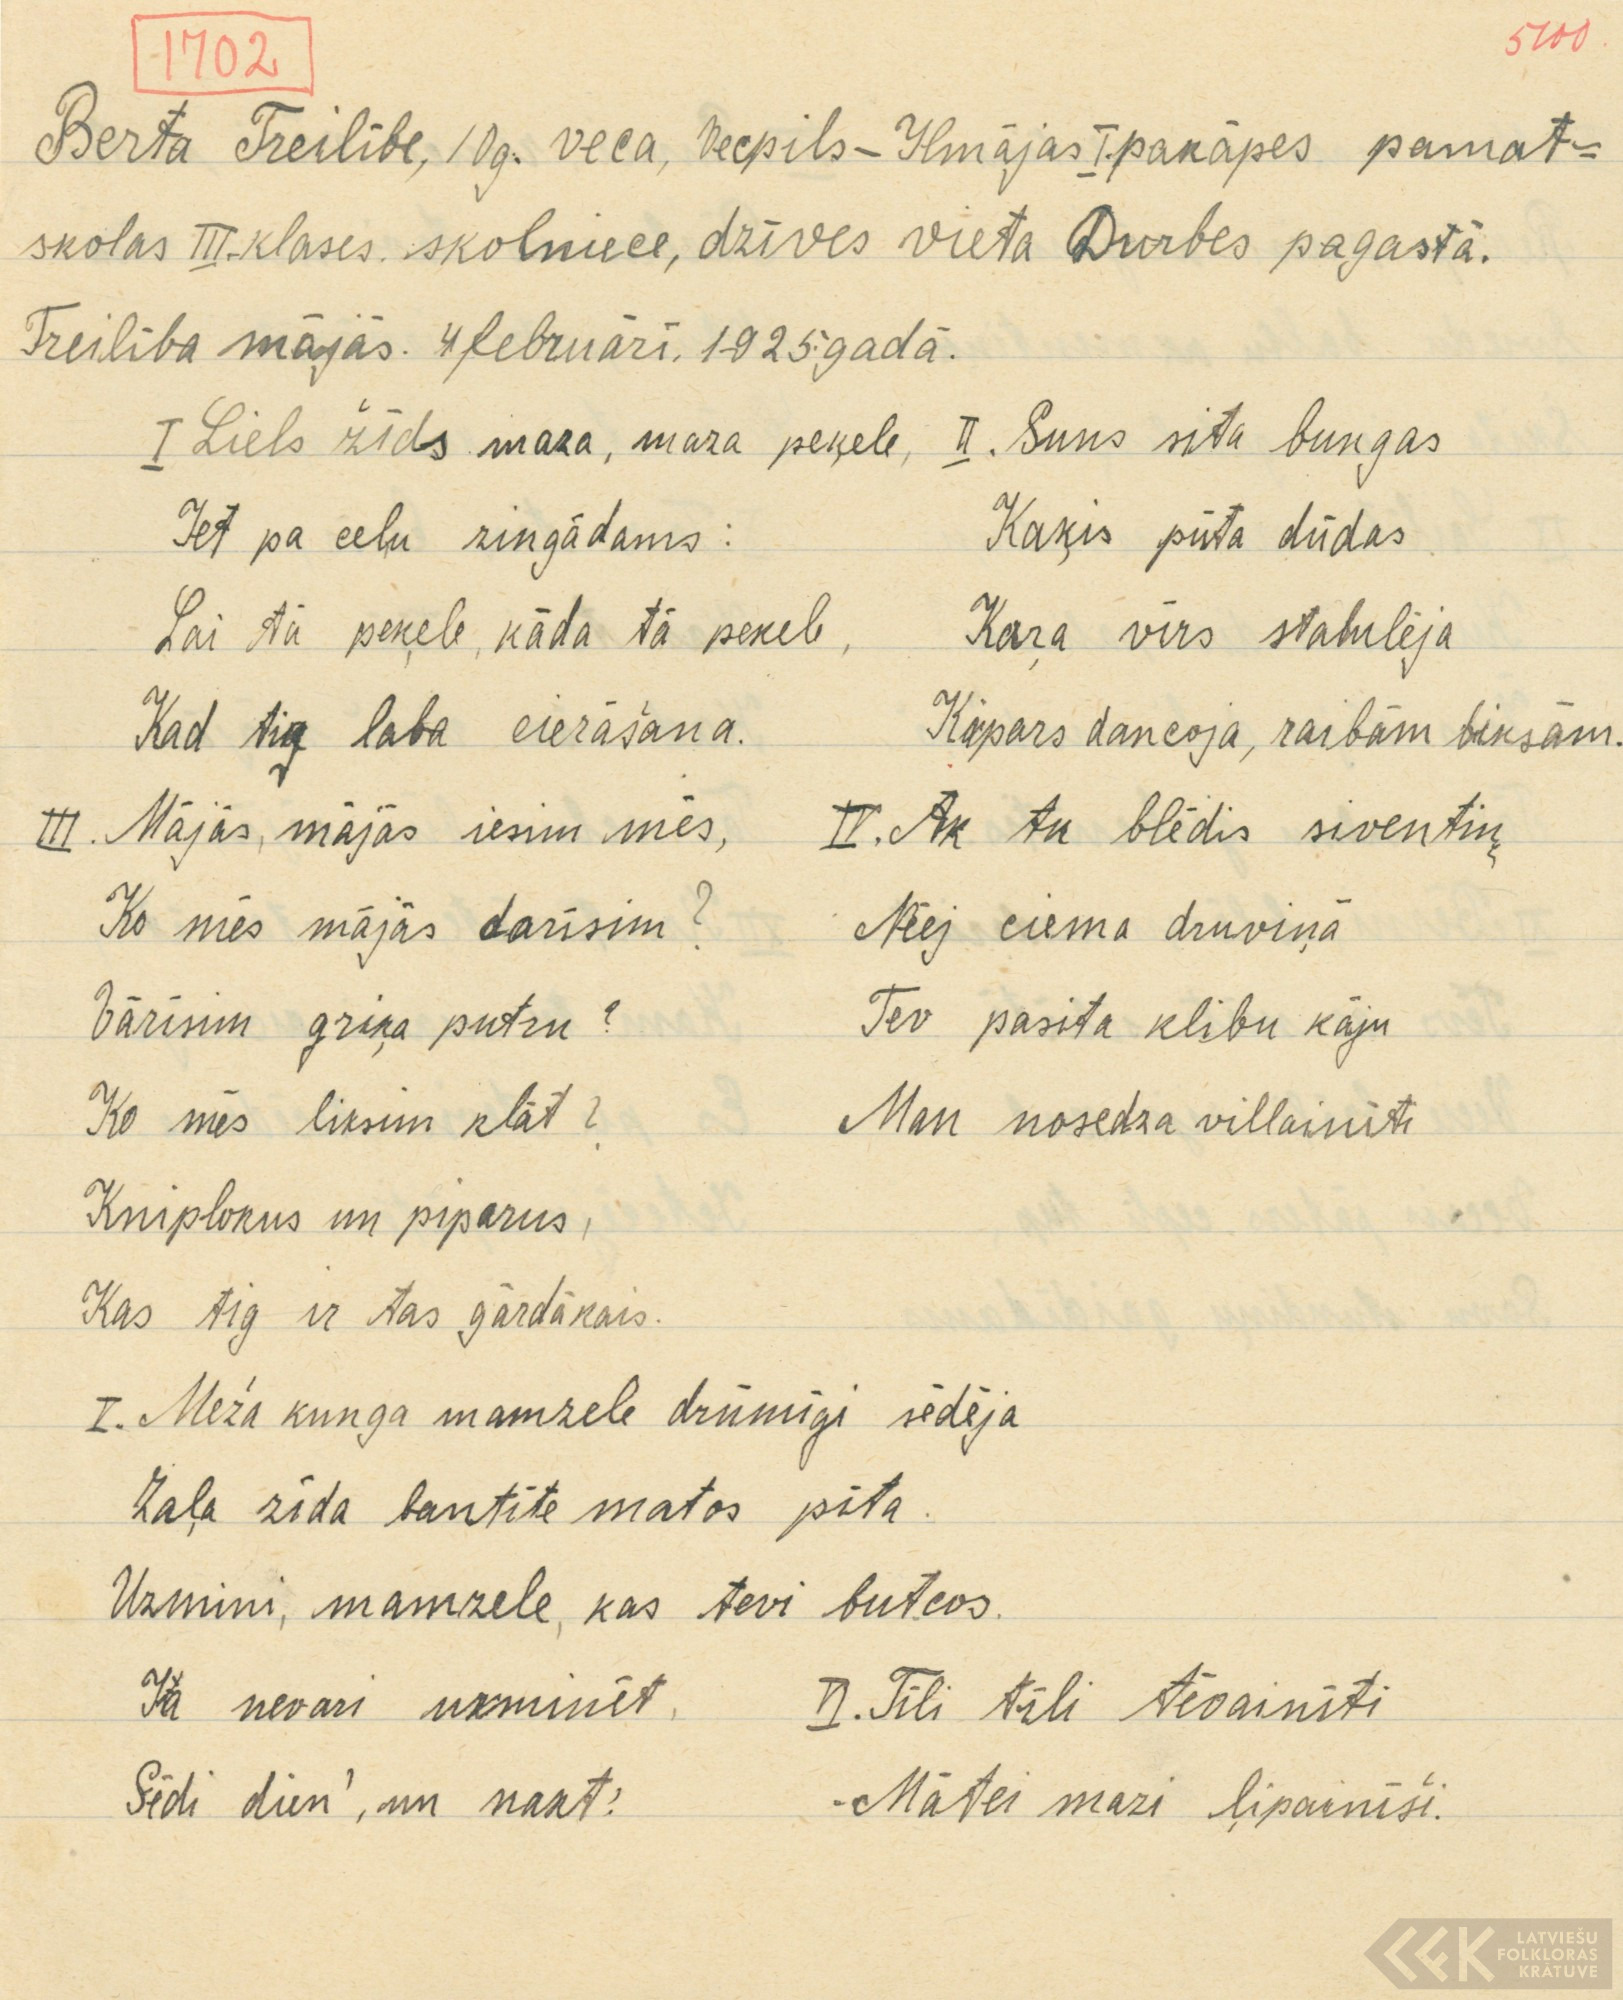 1702
5100.
Berta Treilībe, 10g. veca, Vecpils–Ilmājas I.pakāpes pamat=
skolas III.klases. skolniece, dzīves vieta Durbes pagastā.
Treilība mājās. 4 februārī. 1925.gadā.
I Liels žīds maza, maza peķele,
Iet pa ceļu zingādams:
Lai tā peķele, kāda tā pekele,
Kad tig laba cierāšana.
II. Suns sita bungas
Kaķis pūta dūdas
Kaŗa vīrs stabulēja
Kāpars dancoja, raibām biksām.
III. Mājās, mājās iesim mēs,
Ko mēs mājās darīsim?
Vārīsim griķa putru?
Ko mēs liksim klāt?
Kniplokus un piparus,
Kas tig ir tas gārdākais.
IV. Ak tu blēdis siventiņ
Nēej ciema druviņā
Tev pasita klibu kāju
Man nosedza villainīti
V. Meža kunga mamzele drūmīgi sēdēja
Zaļa zīda bantīte matos pīta.
Uzmini, mamzele, kas tevi butcos.
Ja nevari uzminēt,
Sēdi dien', un nakt'.
VI. Tīli tīli tēvainīti
Mātei mazi ļipainīši.
LATVIEŠU
FOLKLORAS
KRĀTUVE